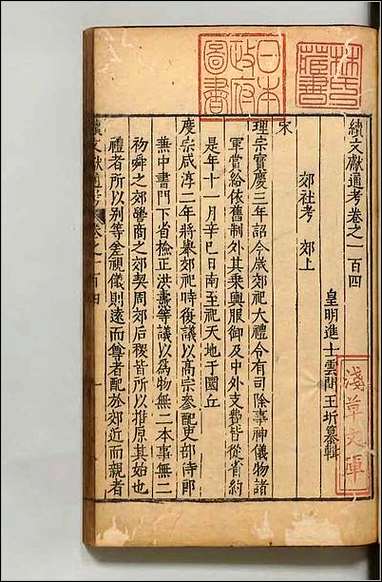 續文獻通考卷之一百四
皇明進士雲間王圻纂輯
郊社考 郊上
宋
理宗寶慶三年詔今歲郊祀大禮令有司除事神儀物諸
軍賞給依舊制外其乘輿服御及中外支費皆從省約
是年十一月辛巳日南至祀天地于圜丘
度宗咸淳二年將舉郊祀時復議以高宗參配吏部侍郎
兼中書門下省檢正洪燾等議以爲物無二本事無二
初舜之郊嚳商之郊契周郊后稷皆所以推原其始也
禮者所以別等差視儀則遠而尊者配於郊近而親者
續文獻通考 卷之一百四
一
日本
政府
圖書
淺草文庫
林氏
藏書